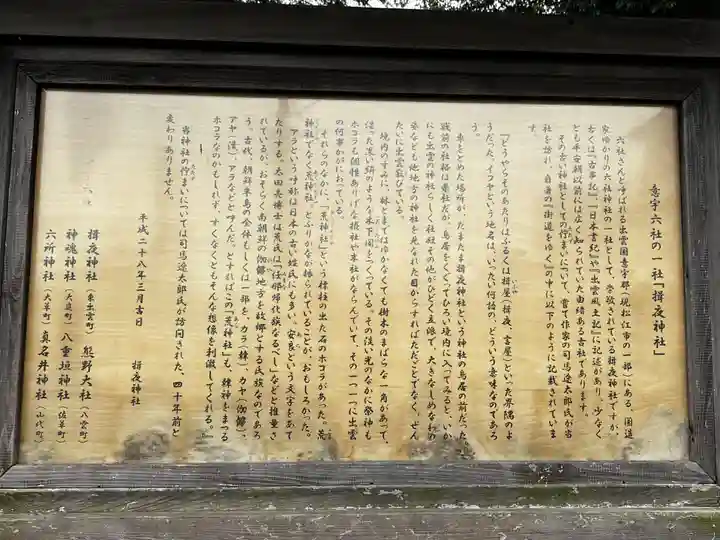 意宇六社の一社「揖夜神社」
六社さんと呼ばれる出雲国意宇郡(現松江市の一部)にある、国造
家ゆかりの六社神社の一社として、崇敬されている揖夜神社ですが、
古くは『古事記』、『日本書紀』や『出雲風土記』に記述があり、少なく
とも平安朝以前には広く知られていた由緒ある古社であります。
その古い神社としての佇まいについて、嘗て作家の司馬遼太郎氏が当
社を訪れ、自著の『街道をゆく』の中に以下のように記載されていま
す。
「どうやらそのあたりはふるくは揖屋(揖夜、言屋)といった界隈のよ
うだった。イフヤという地名は、いったい何語の、どういう意味なのであろ
う。
車をとめた場所が、たまたま揖夜神社という神社の鳥居の前だった。
戦前の社格は県社だが、鳥居をくぐってひろい境内に入ってみると、いか
にも出雲の神社らしく社殿その他がひどく立派で、大きなしめなわの
姿なども他地方の神社を見なれた目からすればただごとでなく、ぜん
たいに出雲寂びている。
境内のすみに、林とまではゆかなくても樹木のまばらな一角があって、
その淡い光のなかに祭神も
ホコラも個性ありげな摂社や末社がならんでいて、その一つ一つに出雲
の何事かがにおっている。
それらのなかに、「荒神社」という標柱の出た石のホコラがあった。荒
神社でなく荒神社、とふりがなが振られていることが、おもしろかった。
アラという呼称は日本の古い姓氏にも多い。安良という文字をあて
たりする。太田亮博士は荒氏は「任那帰化族なるべし」などと推量さ
れているが、おそらく南朝鮮の伽倻地方を故郷とする氏族なのであろ
う。古代、朝鮮半島の全体もしくは一部を、カラ(韓)、カヤ(伽倻)、
アヤ(漢)、アラなどと呼んだ。とすればこの「荒神社」も、韓神をまつる
ホコラなのかもしれず、すくなくともそんな想像を刺激してくれる。」
当神社の佇まいについては司馬遼太郎氏が訪問された、四十年前と
変わりありません。
平成二十八年三月吉日
揖夜神社
揖夜神社(東出雲町) 熊野大社(八雲町)
神魂神社(大庭町) 八重垣神社(佐草町)
六所神社(大草町) 真名井神社(山代町)